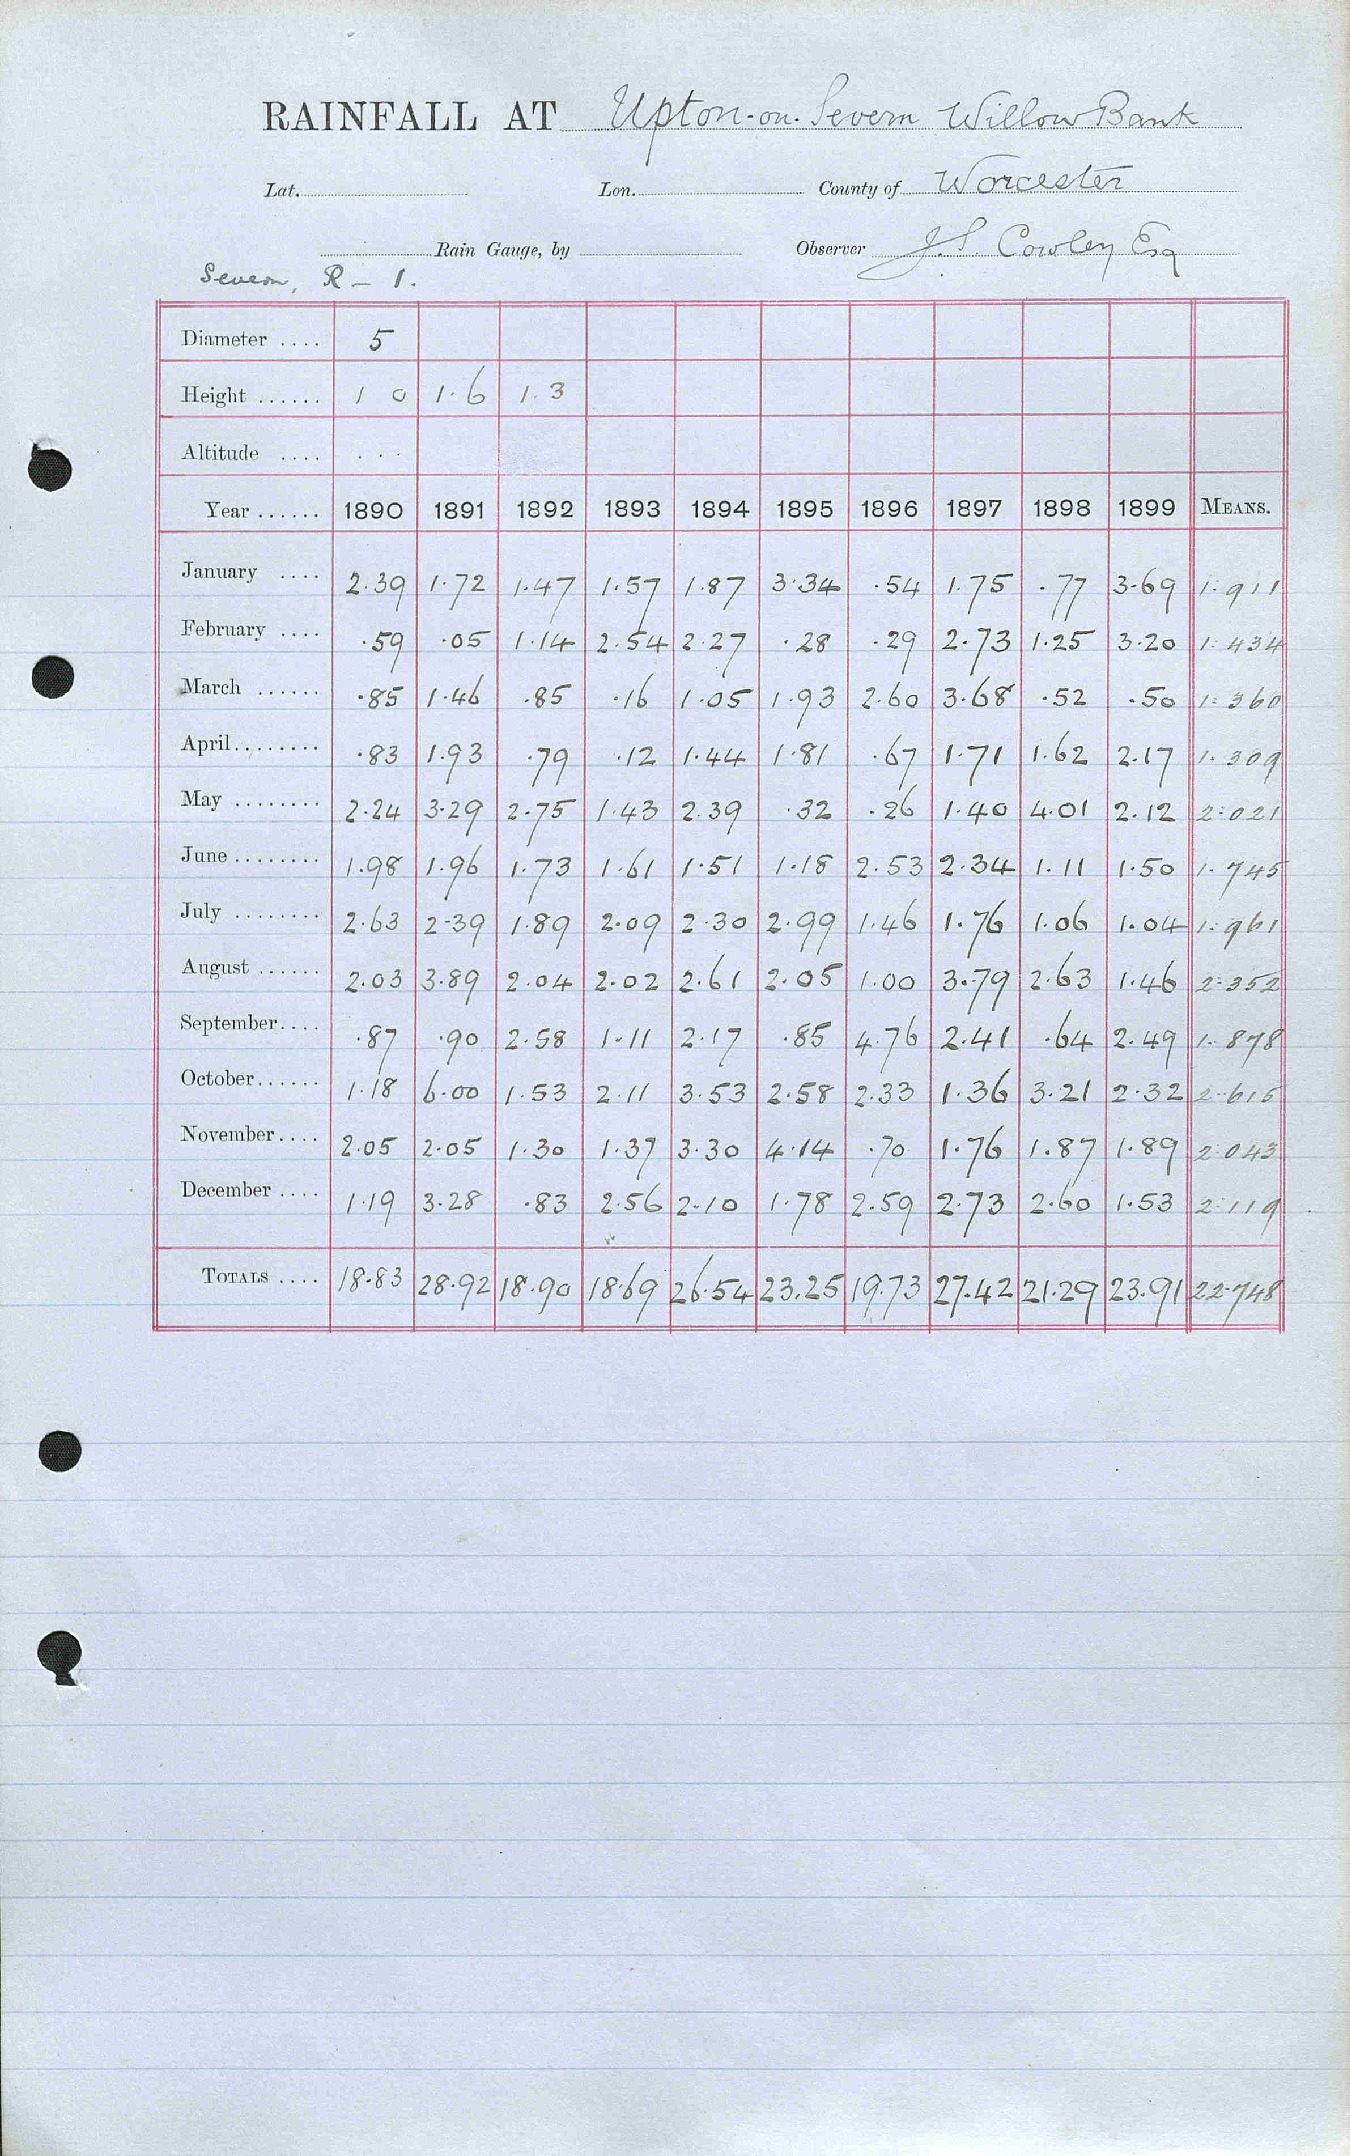 RAINFALL AT Upton-on-Severn Willow Bank
Lat. Lon. County of Worcester
Rain Gauge, by Observer J.S. Cowley Esq
Severn, R – 1.
Diameter .... 5
Height ...... 1 0 1.6 1.3
Altitude .... ...
Year ...... 1890 1891 1892 1893 1894 1895 1896 1897 1898 1899 MEANS.
January .... 2.39 1.72 1.47 1.57 1.87 3.34 .54 1.75 .77 3.69 1.911
February .... .59 .05 1.14 2.54 2.27 .28 .29 2.73 1.25 3.20 1.434
March ...... .85 1.46 .85 .16 1.05 1.93 2.60 3.68 .52 .50 1.360
April........ .83 1.93 .79 .12 1.44 1.81 .67 1.71 1.62 2.17 1.309
May ........ 2.24 3.29 2.75 1.43 2.39 .32 .26 1.40 4.01 2.12 2.021
June ........ 1.98 1.96 1.73 1.61 1.51 1.18 2.53 2.34 1.11 1.50 1.745
July ........ 2.63 2.39 1.89 2.09 2.30 2.99 1.46 1.76 1.06 1.04 1.961
August ...... 2.03 3.89 2.04 2.02 2.61 2.05 1.00 3.79 2.63 1.46 2.352
September.... .87 .90 2.58 1.11 2.17 .85 4.76 2.41 .64 2.49 1.878
October...... 1.18 6.00 1.53 2.11 3.53 2.58 2.33 1.36 3.21 2.32 2.615
November.... 2.05 2.05 1.30 1.37 3.30 4.14 .70 1.76 1.87 1.89 2.043
December .... 1.19 3.28 .83 2.56 2.10 1.78 2.59 2.73 2.60 1.53 2.119
TOTALS .... 18.83 28.92 18.90 18.69 26.54 23.25 19.73 27.42 21.29 23.91 22.748